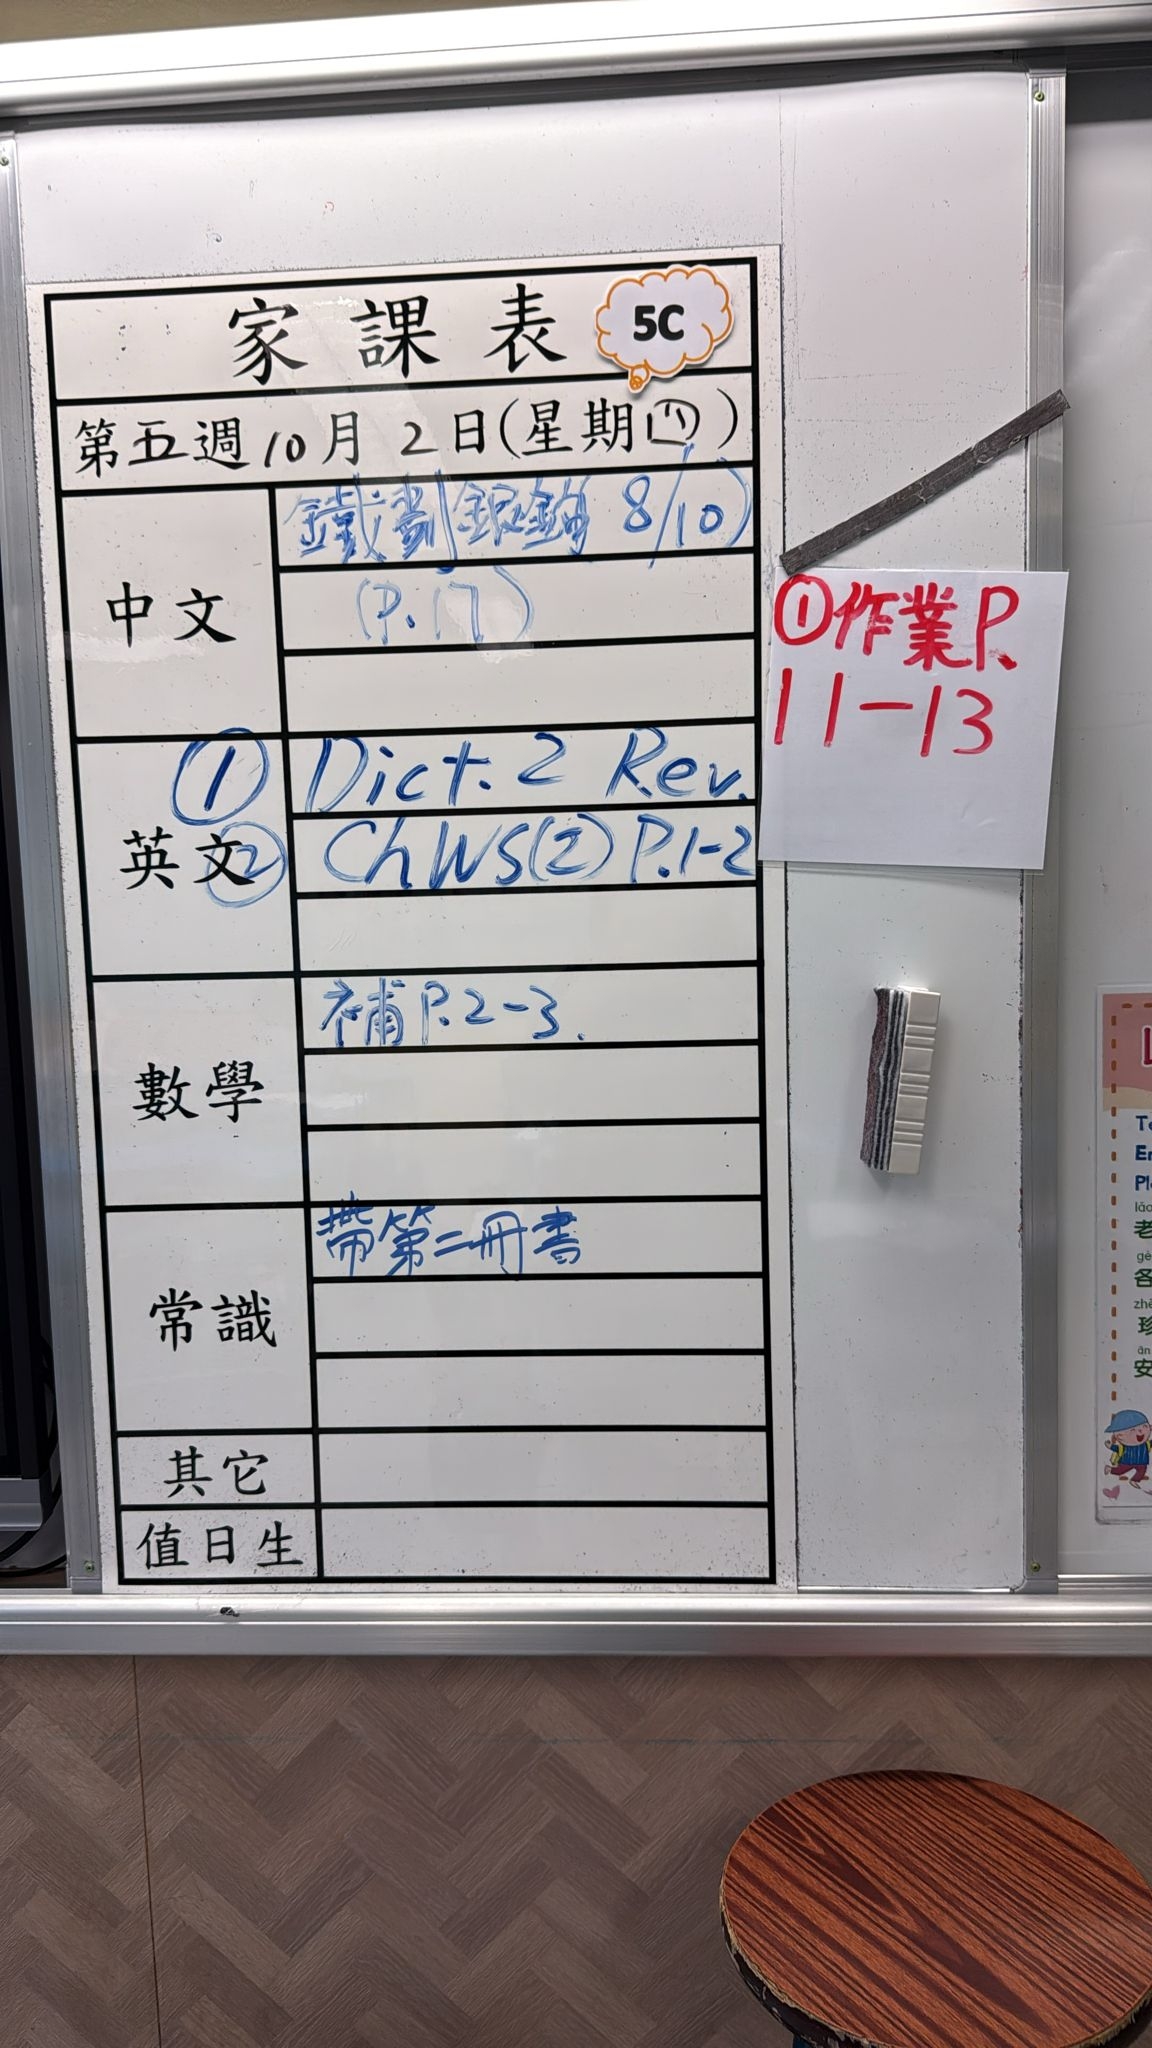 家課表
5C
第五週10月2日(星期四)
中文
鐵劃銀鈎 8/10)
(P.17)
①作業P.
11-13
英文
① Dict. 2 Rev.
② Ch WS(2) P.1-2
數學
補P.2-3.
常識
帶第二冊書
其它
值日生
lǎo
老
各
珍
ān
安